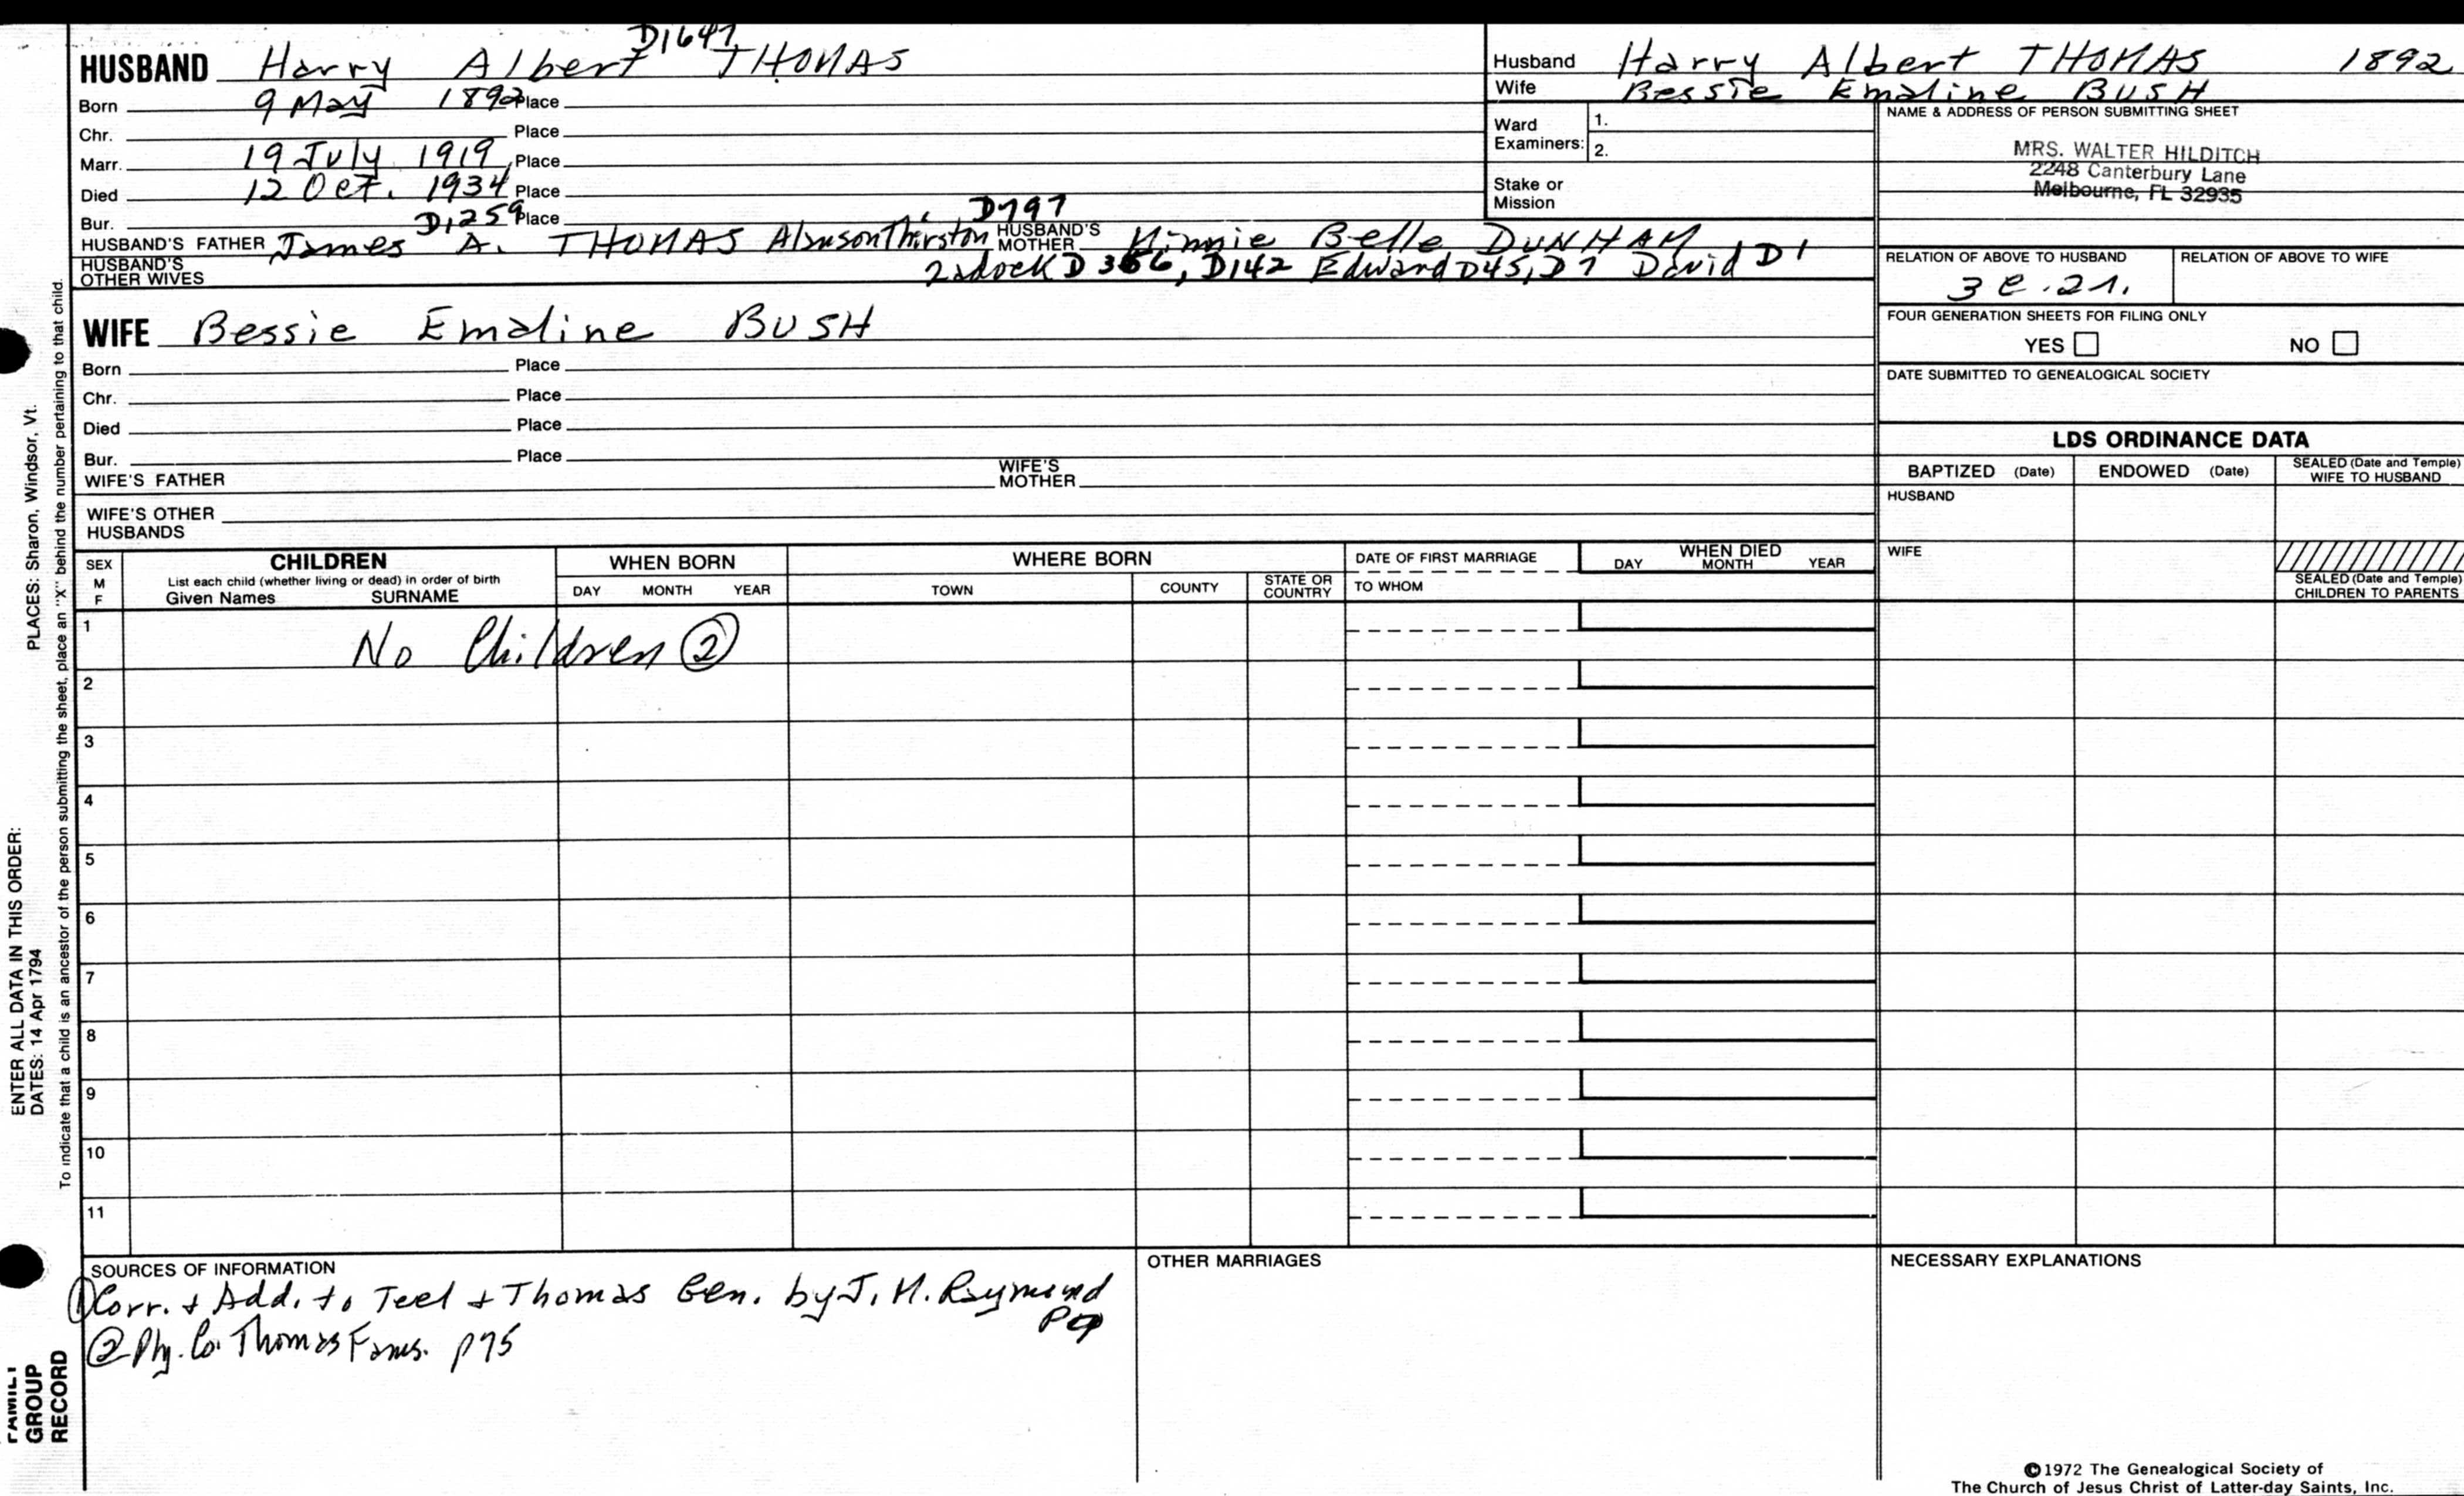 D1647
HUSBAND Harry Albert THOMAS
Born 9 May 1892 Place
Chr. Place
Marr. 19 July 1919 Place
Died 12 Oct. 1934 Place
Bur. Place
D1259 D797
HUSBAND'S FATHER James A. THOMAS Alanson Thurston HUSBAND'S MOTHER Minnie Belle DUNHAM
HUSBAND'S OTHER WIVES Zadock D 366, D142 Edward D45, D7 David D1
WIFE Bessie Emaline BUSH
Born Place
Chr. Place
Died Place
Bur. Place
WIFE'S FATHER WIFE'S MOTHER
WIFE'S OTHER HUSBANDS
Husband Harry Albert THOMAS 1892
Wife Bessie Emaline BUSH
Ward Examiners: 1.
2.
Stake or Mission
NAME & ADDRESS OF PERSON SUBMITTING SHEET
MRS. WALTER HILDITCH
2248 Canterbury Lane
Melbourne, FL 32935
RELATION OF ABOVE TO HUSBAND RELATION OF ABOVE TO WIFE
FOUR GENERATION SHEETS FOR FILING ONLY
YES NO
DATE SUBMITTED TO GENEALOGICAL SOCIETY
LDS ORDINANCE DATA
BAPTIZED (Date) ENDOWED (Date) SEALED (Date and Temple) WIFE TO HUSBAND
HUSBAND
WIFE
SEALED (Date and Temple) CHILDREN TO PARENTS
SEX M F
CHILDREN
List each child (whether living or dead) in order of birth
Given Names SURNAME
WHEN BORN
DAY MONTH YEAR
WHERE BORN
TOWN COUNTY STATE OR COUNTRY
DATE OF FIRST MARRIAGE
TO WHOM
WHEN DIED
DAY MONTH YEAR
1 No Children ②
2
3
4
5
6
7
8
9
10
11
SOURCES OF INFORMATION
① Corr. + Add. to Teel + Thomas Gen. by J. H. Raymond
② Ply. Co. Thomas Fams. p75
OTHER MARRIAGES
NECESSARY EXPLANATIONS
©1972 The Genealogical Society of
The Church of Jesus Christ of Latter-day Saints, Inc.
PLACES: Sharon, Windsor, Vt.
ENTER ALL DATA IN THIS ORDER:
DATES: 14 Apr 1794
To indicate that a child is an ancestor of the person submitting the sheet, place an "X" behind the number pertaining to that child.
FAMILY
GROUP
RECORD